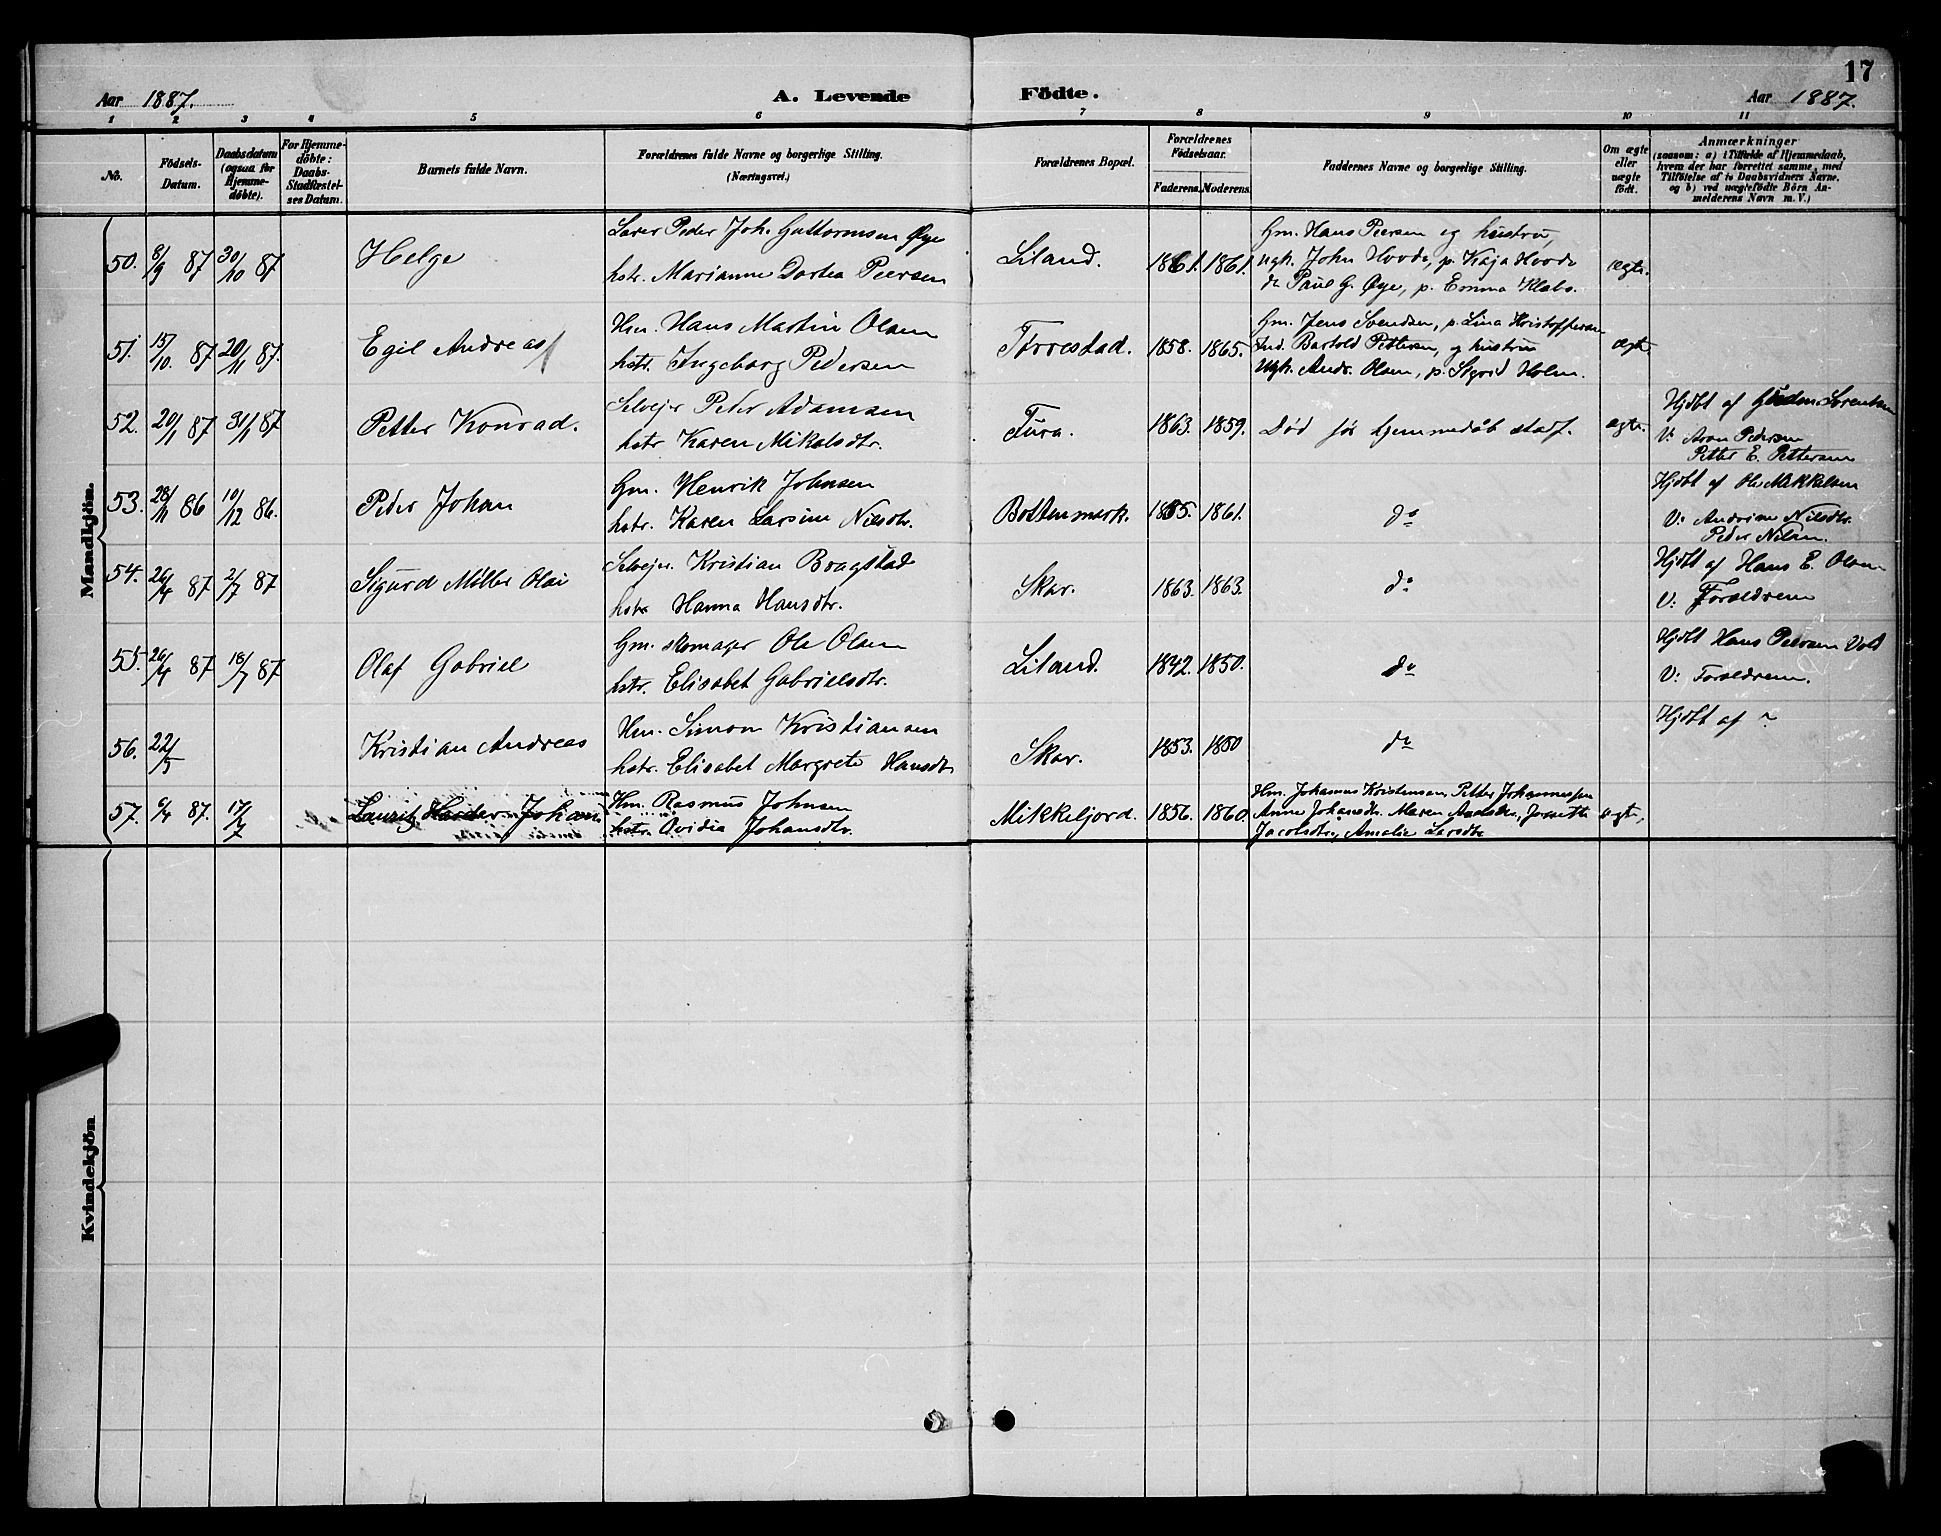 17
Aar 1887.
A. Levende Födte.
Aar 1887.
1 2 3 4 5 6 7 8 9 10 11
No.
Födsels-Datum.
Daabsdatum (ogsaa for Hjemme-döbte).
For Hjemme-döbte: Daabs-Stadfæstel-ses Datum.
Barnets fulde Navn.
Forældrenes fulde Navne og borgerlige Stilling.
(Næringsvei.)
Forældrenes Bopæl.
Forældrenes Födselsaar.
Faderens. Moderens.
Faddernes Navne og borgerlige Stilling.
Om ægte eller uægte födt.
Anmærkninger
(saasom: a) i Tilfælde af Hjemmedaab, hvem der har forrettet samme, med Tilföielse af to Daabsvidners Navne, og b) ved uægtefödte Börn An-melderens Navn m. V.)
Mandkjön.
50. 8/9 87 30/10 87 Helge
Lærer Peder Joh. Guttormsen Øye
hstr. Marianne Dortea Peersen
Liland. 1861. 1861.
Gm. Hans Peersen og hustru,
Ugk. John Hovde, p. Kaja Hovde
do Paul G. Øye, p. Emma Klæbo.
ægte.
51. 15/10. 87 20/11 87. Egil Andreas
Hm. Hans Martin Olsen
hstr. Ingeborg Pedersen
Tørrestad. 1858. 1865.
Gm. Jens Svendsen, p. Lina Kristoffersen
Ind. Bartold Pettersen, og hustru
Ugk. Andr. Olsen, p. Sigrid Holm.
ægte
52. 20/1 87 31/1 87 Petter Konrad.
Selvejer Peder Adamsen
hstr Karen Mikalsdtr.
Fura. 1863. 1859.
Død før hjemmedåb stadf.
ægte.
Hjdbt af Lorentsen
V: Aron Pedersen
Petter E. Pettersen
53. 28/11 86 10/12 86. Peder Johan
Gm. Henrik Johnsen
hstr. Karen Larsine Nilsdtr.
Bottenmark. 1855. 1861.
do
Hjdbt af Ole Mikkelsen
V: Andrine Nilsdtr.
Peder Nilsen.
54. 26/4 87 2/7 87 Sigurd Möller Olai
Selvejer. Kristian Bragstad
hstr Hanna Hansdtr.
Skar. 1863. 1863.
do
Hjdbt af Hans E. Olsen
V: Foreldrene
55. 26/4 87 18/7 87 Olaf Gabriel
Gm. skomager Ole Olsen
hstr. Elisabet Gabrielsdtr.
Liland. 1842. 1850.
do
Hjdbt Hans Peersen Vold
V: Foreldrene.
56. 22/5 Kristian Andreas
Hm. Simon Kristiansen
hstr. Elisabet Margrete Hansdtr
Skar. 1853. 1850
do
Hjdbt af ?
57. 6/4 87. 17/7 Lauritz Harder Johan
Hm. Rasmus Johnsen
hstr. Ovidia Johansdtr.
Mikkeljord. 1856. 1860.
Hm. Johannes Kristensen, Petter Johannessen
Anne Johansdtr. Maren Jonette
Jacobsdtr, Amalie Larsdtr
ægte,
Kvindekjön